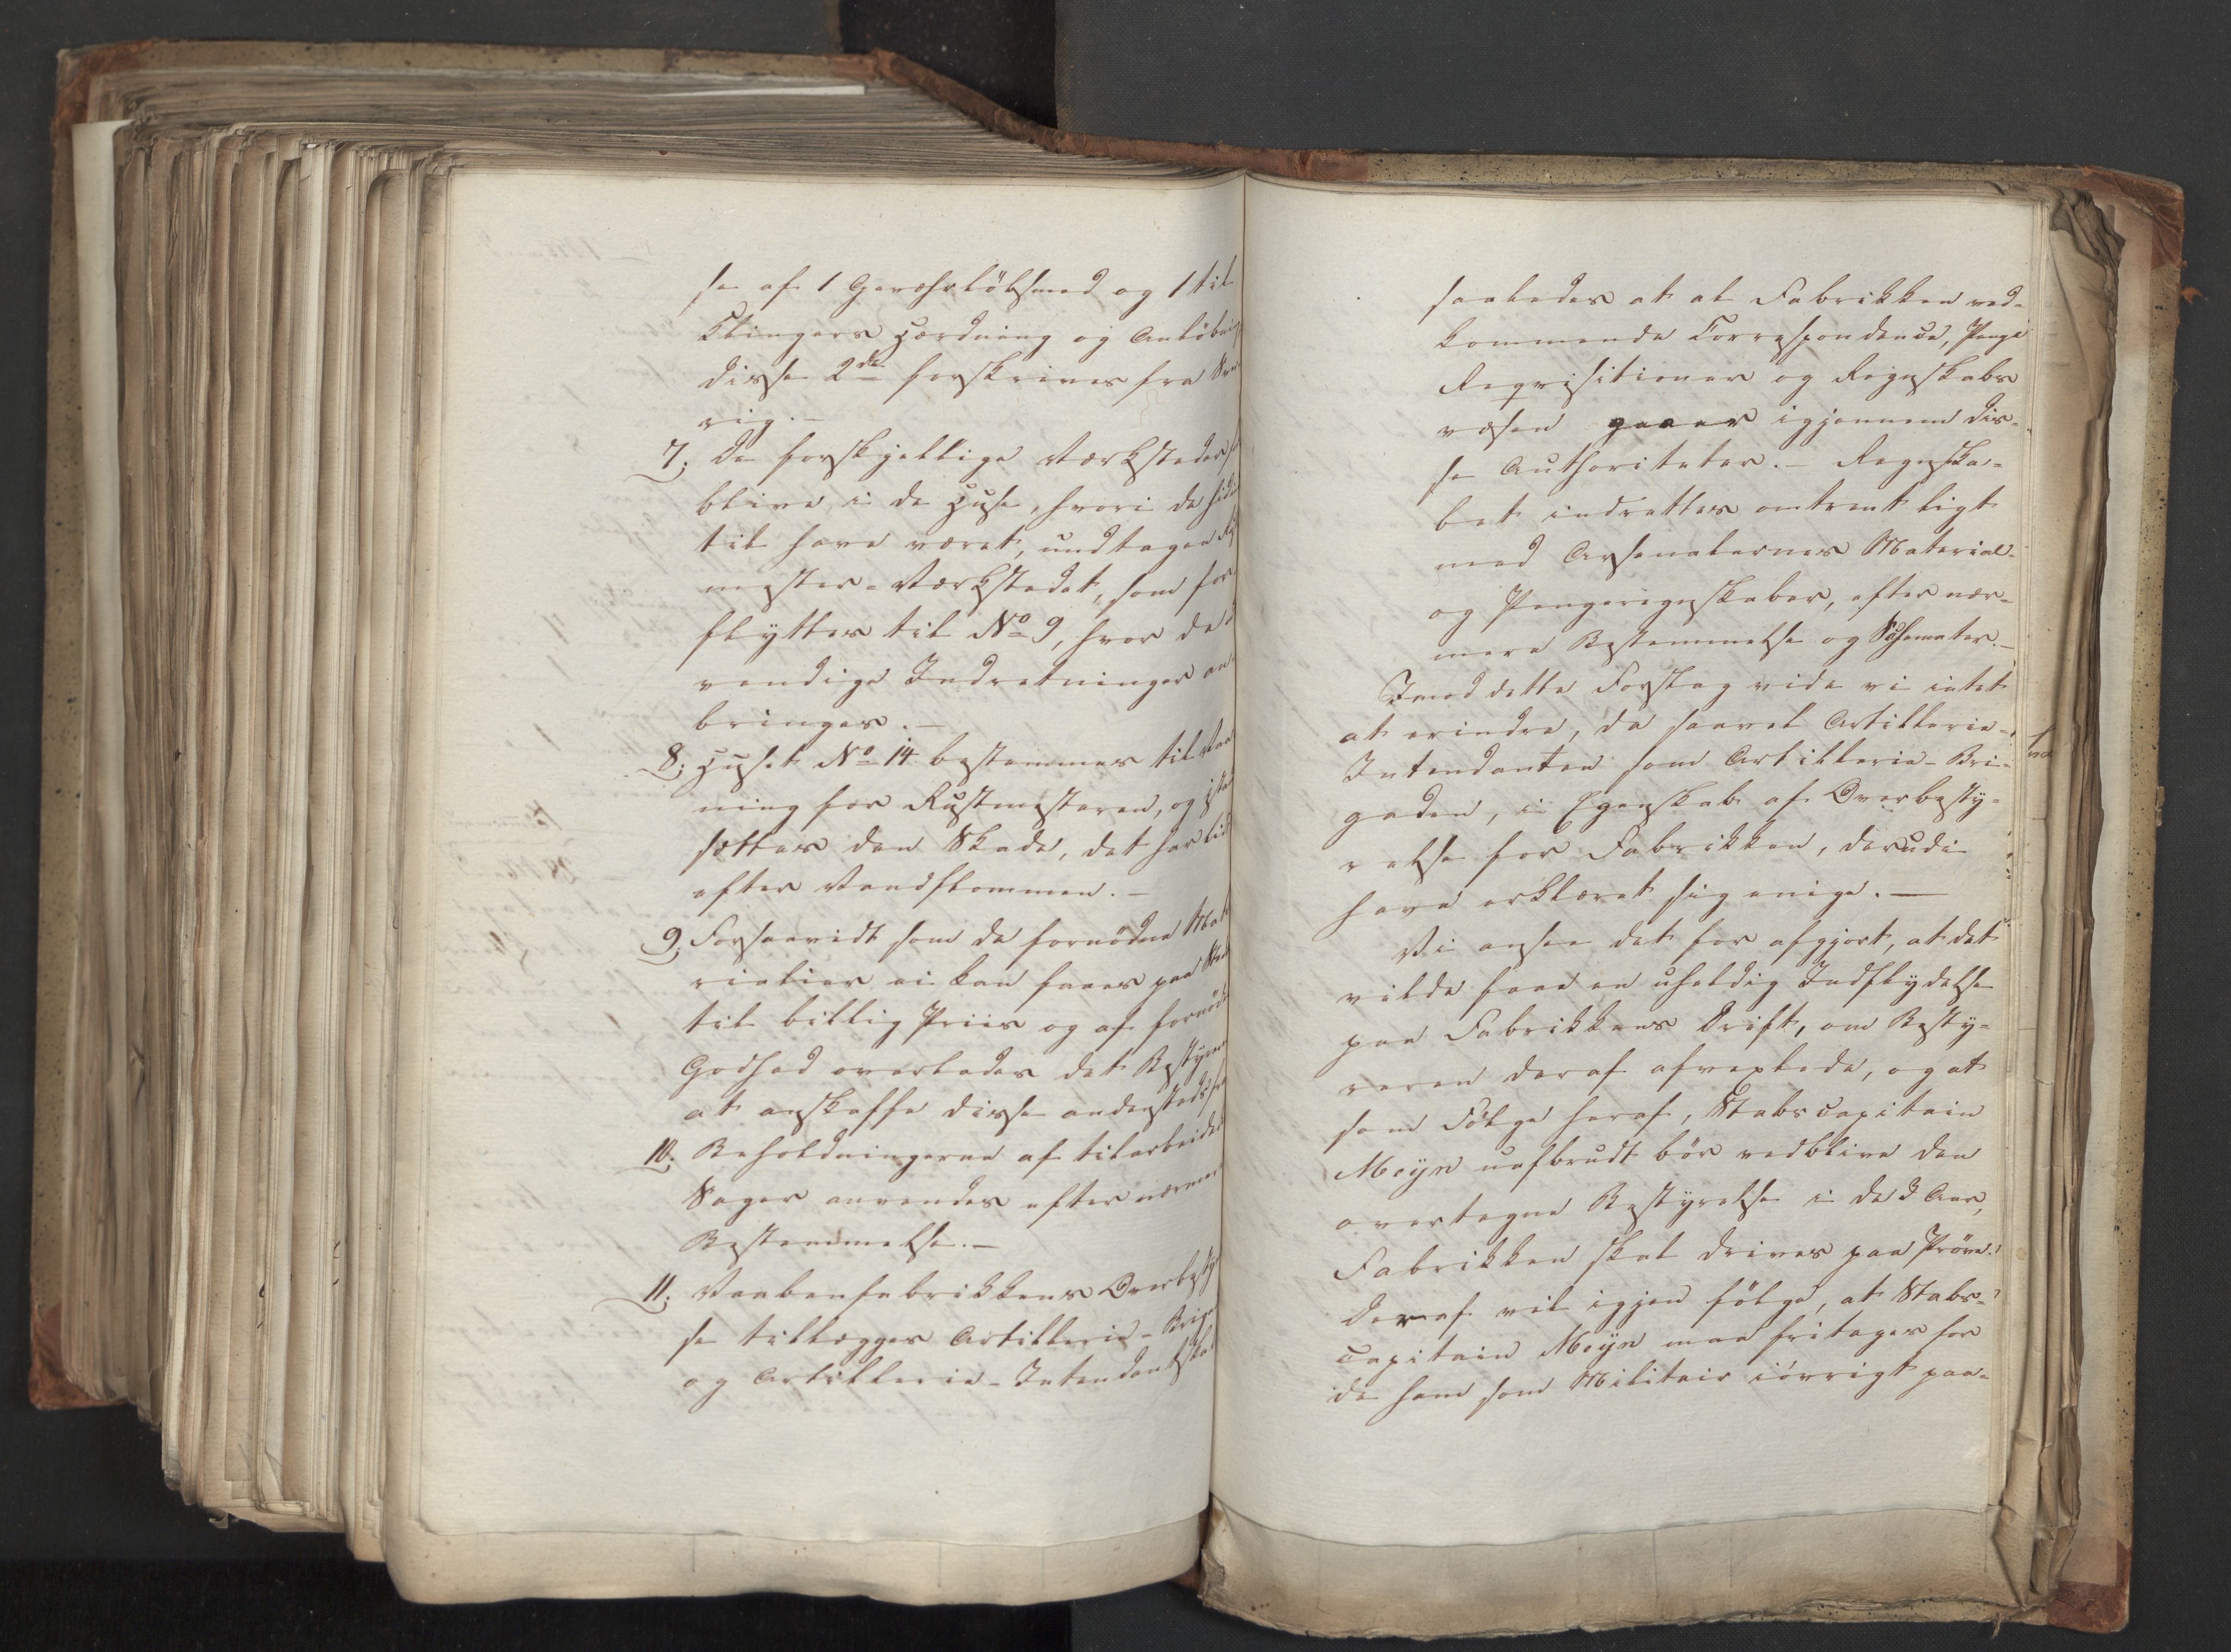 se af 1 Geværløbsmed og 1 til
Klingers Hærdning og Anløbning
disse 2de forskrives fra Sve
rig.-
7. De forskjellige Værksteder
blive i de Huse, hvori de hid
til have været, undtagen
mester-Værkstedet, som for
flyttes til No 9, hvor de
vendige Indretninger an
bringes.-
8. Huset No 14 bestemmes til Vaa
ning for Rustmesteren, og istand
sættes den Skade, det har lid
efter Vandflommen.-
9. Forsaavidt som de fornødne Mate
rialier ei kan faaes paa Sted
til billig Priis og af fornød
Godhed overlades det Bestyrer
at anskaffe disse andensteds fra
10. Beholdningerne af tilarbeidede
Sager anvendes efter nærmere
Bestemmelse.-
11. Vaabenfabrikkens Overbesty
se tillægges Artillerie-Briga
og Artillerie-Intendantskab
saaledes at al Fabrikken ved-
kommende Correspondence, Penge
Reqvisitioner og Regnskabs
væsen gaaer igjennem dis-
se Authoriteter.- Regnska-
bet indrettes omtrent ligt
med Arsenalernes Material-
og Pengeregnskaber, efter nær-
mere Bestemmelse og Schemater.-
Imod dette Forslag vide vi intet
at erindre, da saavel Artillerie-
Intendanten som Artillerie-Bri-
gaden, i Egenskab af Overbesty-
relse for Fabrikken, derudi
have erklæret sig enige.-
Vi ansee det for afgjort, at det
vilde faae en uheldig Indflydelse
paa Fabrikkens Drift, om Besty-
reren deraf afvexlede, og at
som Følge heraf, Stabscapitain
Meyn uafbrudt bør vedblive den
overtagne Bestyrelse i de 3 Aar,
Fabrikken skal drives paa Prøve.
Deraf vil igjen følge, at Stabs-
capitain Meyn maa fritages for
de ham som Militair iøvrigt paa-